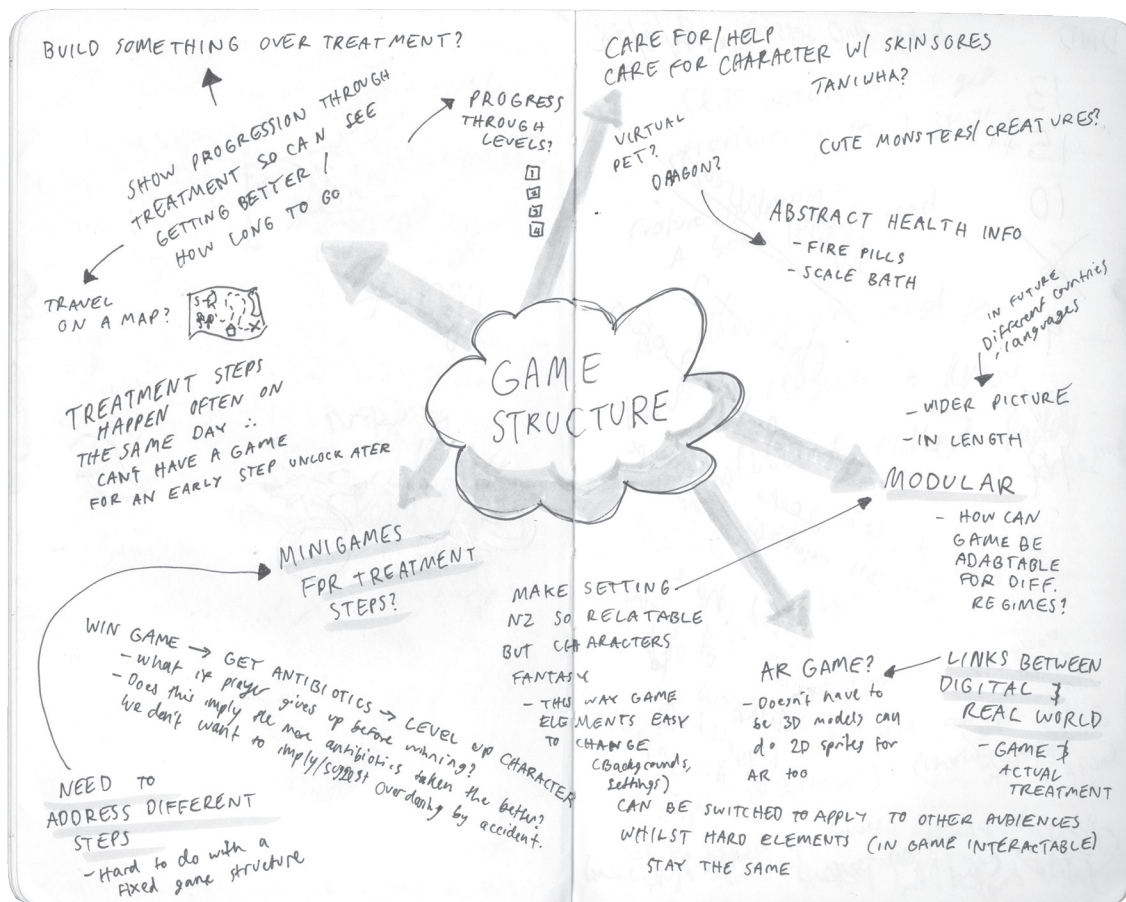 BUILD SOMETHING OVER TREATMENT?
SHOW PROGRESSION THROUGH
TREATMENT SO CAN SEE
GETTING BETTER /
HOW LONG TO GO
PROGRESS
THROUGH
LEVELS?
1
2
3
4
TRAVEL
ON A MAP?
TREATMENT STEPS
HAPPEN OFTEN ON
THE SAME DAY ∴
CANT HAVE A GAME
FOR AN EARLY STEP UNLOCK ATER
MINIGAMES
FOR TREATMENT
STEPS?
WIN GAME → GET ANTIBIOTICS → LEVEL UP CHARACTER
- what if player gives up before winning?
- Does this imply the more antibiotics taken the better?
We don't want to imply/suggest overdosing by accident.
NEED TO
ADDRESS DIFFERENT
STEPS
- Hard to do with a
fixed game structure
GAME
STRUCTURE
CARE FOR/HELP
CARE FOR CHARACTER W/ SKINSORES
TANIWHA?
VIRTUAL
PET?
DRAGON?
CUTE MONSTERS/CREATURES?
ABSTRACT HEALTH INFO
- FIRE PILLS
- SCALE BATH
IN FUTURE
Different countries
languages
- WIDER PICTURE
- IN LENGTH
MODULAR
- HOW CAN
GAME BE
ADABTABLE
FOR DIFF.
REGIMES?
MAKE SETTING
NZ SO RELATABLE
BUT CHARACTERS
FANTASY
- THIS WAY GAME
ELEMENTS EASY
TO CHANGE
(Backgrounds,
settings)
CAN BE SWITCHED TO APPLY TO OTHER AUDIENCES
WHILST HARD ELEMENTS (IN GAME INTERACTABLE)
STAY THE SAME
AR GAME?
- Doesn't have to
be 3D models can
do 2D sprites for
AR too
LINKS BETWEEN
DIGITAL &
REAL WORLD
- GAME &
ACTUAL
TREATMENT